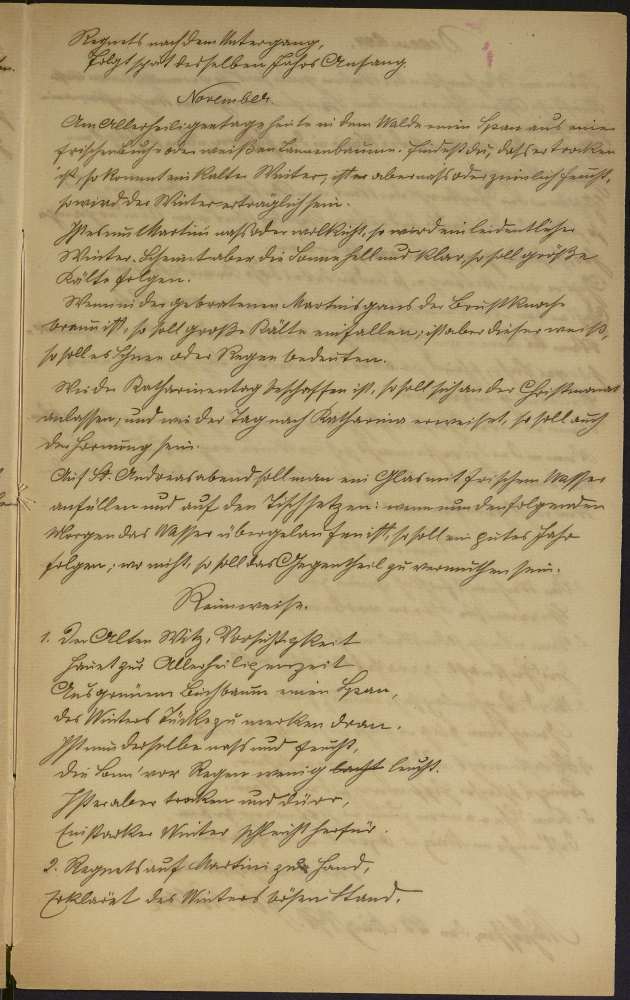 Regnets nach dem Untergang,
Folgt spät desselben Jahrs Anfang.
November.
Am Allerheiligentage haue in dem Walde einen Span aus einer
frischen Buche oder weißen Tannenbaume. Findest du, daß er trocken
ist, so kommt ein kalter Winter; ist er aber naß oder ziemlich feucht,
so wird der Winter erträglich sein.
Ist es um Martini naß oder wolkicht, so wird ein leidentlicher
Winter. Scheint aber die Sonne hell und klar, so soll große
Kälte folgen.
Wenn in der gebratenen Martinsgans der Brustknochen
braun ist, so soll große Kälte einfallen; ist aber dieser weiß,
so soll es Schnee oder Regen bedeuten.
Wie der Katharinentag beschaffen ist, so soll sich an der Christmonat
anlassen; und wie der Tag nach Katharina erweiset, so soll auch
der Hornung sein.
Auf St. Andreasabend soll man ein Glas mit frischem Wasser
anfüllen und auf den Tisch setzen: wenn nun den folgenden
Morgen das Wasser übergelaufen ist, so soll ein gutes Jahr
folgen; wo nicht, so soll das Gegentheil zu vermuthen sein.
Reimweise.
1. Der Alten Witz, Vorsichtigkeit
Hauet zu Allerheiligenzeit
Aus grünem Buchbaum einen Span,
Des Winters Tücke zu merken dran.
Ist nun derselbe naß und feucht,
Die Sonn' vor Regen wenig leucht.
Ist er aber trocken und dürr,
Ein starker Winter schleicht herfür.
2. Regnets auf Martini zu Hand,
Erkläret des Winters bösen Stand.